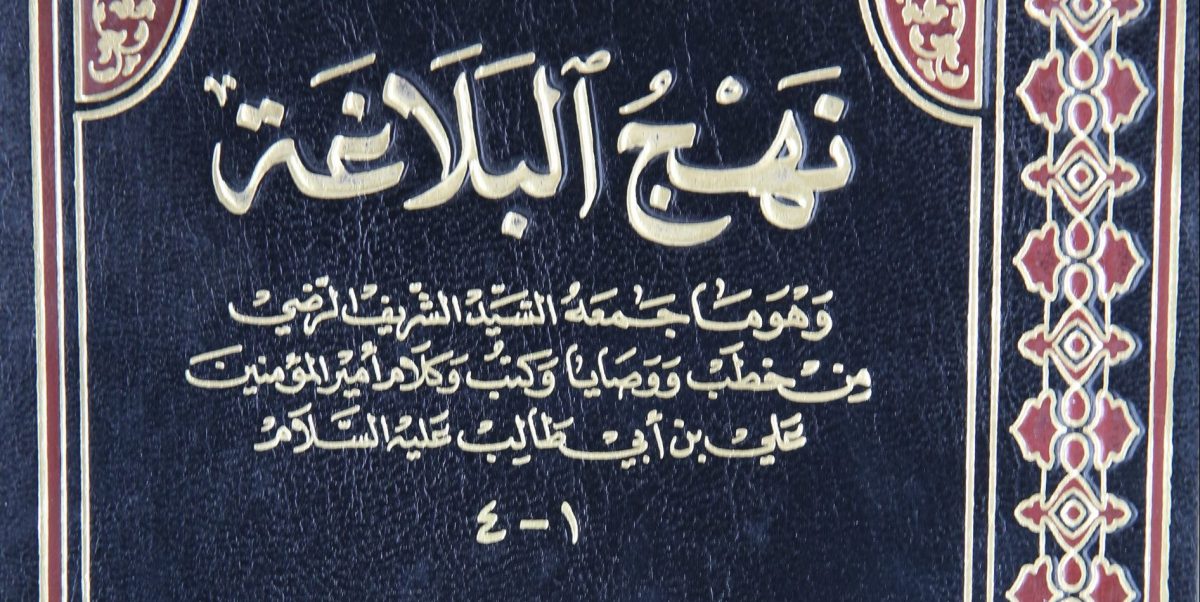 نَهْجُ ٱلبَلَاغَة
وَهُوَ مَا جَمَعَهُ السَّيِّدْ الشَّرِيفْ الرَّضِيْ
مِنْ خُطَبْ وَوَصَايَا وَكُتُبْ وَكَلَام أَمِيْر المُؤْمِنِينَ
عَلِيْ بِن أَبِيْ طَالِبْ عَلَيْهِ السَّلَامْ
١-٤